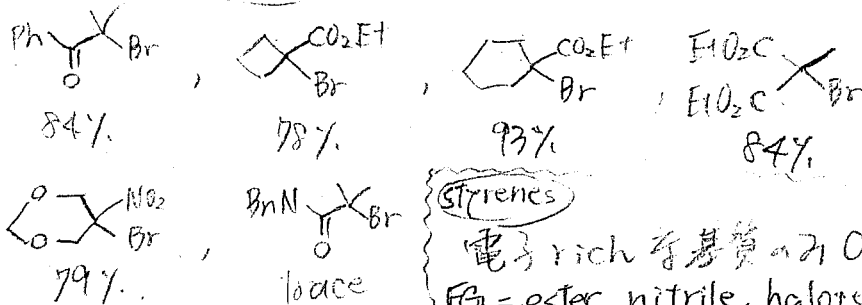 Ph O Br , CO2Et Br , CO2Et Br , EtO2C EtO2C Br
84%. 78%. 93%. 84%
O O NO2 Br , BnN O Br
79%. trace
styrenes
電子rich な基質のみ O
FG = ester, nitrile, halogen